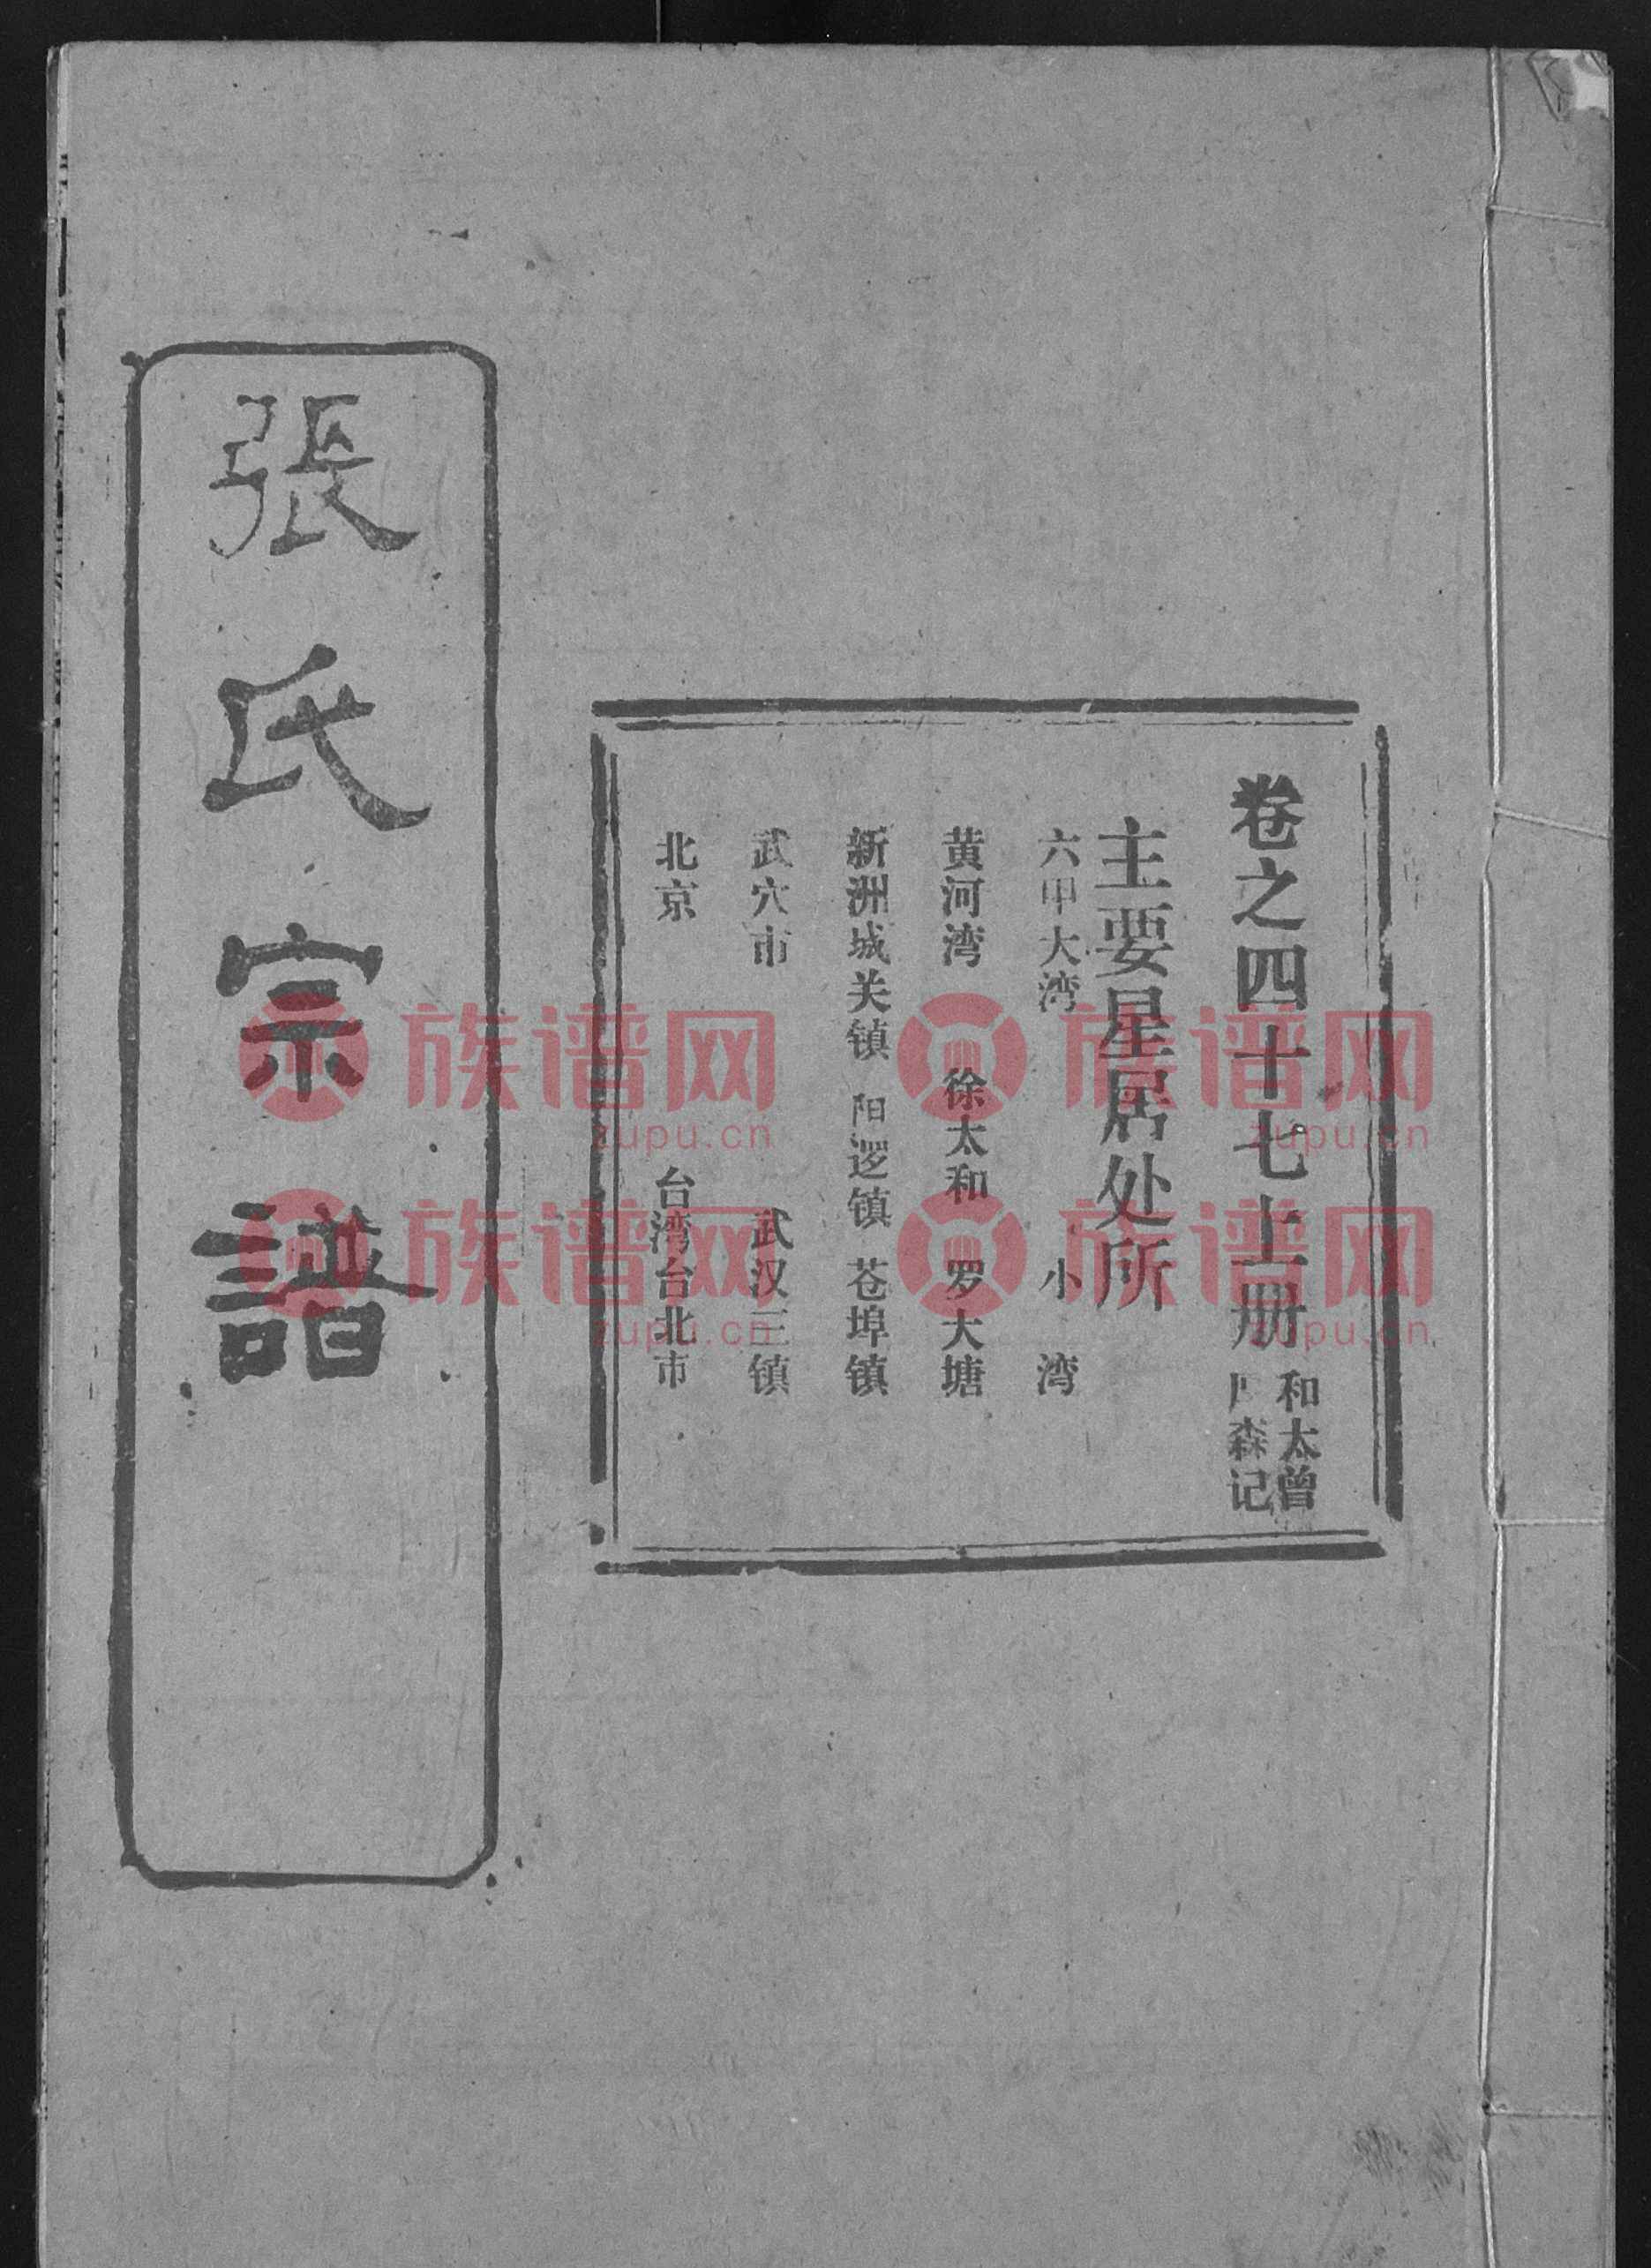 卷之四十七上册 和太曾
森记
主要星居处所
六甲大湾 小湾
黄河湾 徐太和 罗大塘
新洲城关镇 阳逻镇 苍埠镇
武穴市 武汉三镇
北京 台湾台北市
張氏宗譜
族谱网 族谱网
zupu.cn zupu.cn
族谱网 族谱网
zupu.cn zupu.cn